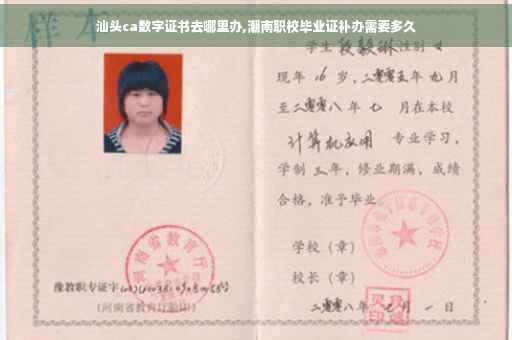 汕头ca数字证书去哪里办,潮南职校毕业证补办需要多久
样本
学生段毅琳性别女
现年16岁,二零零五年九月
至二零零八年七 月在本校
计算机应用 专业学习,
学制三年,修业期满,成绩
合格,准予毕业
学校(章)
校长(章)
河南省教育厅
豫教职专证字
(河南省教育厅验印)
二零零八年七月一日